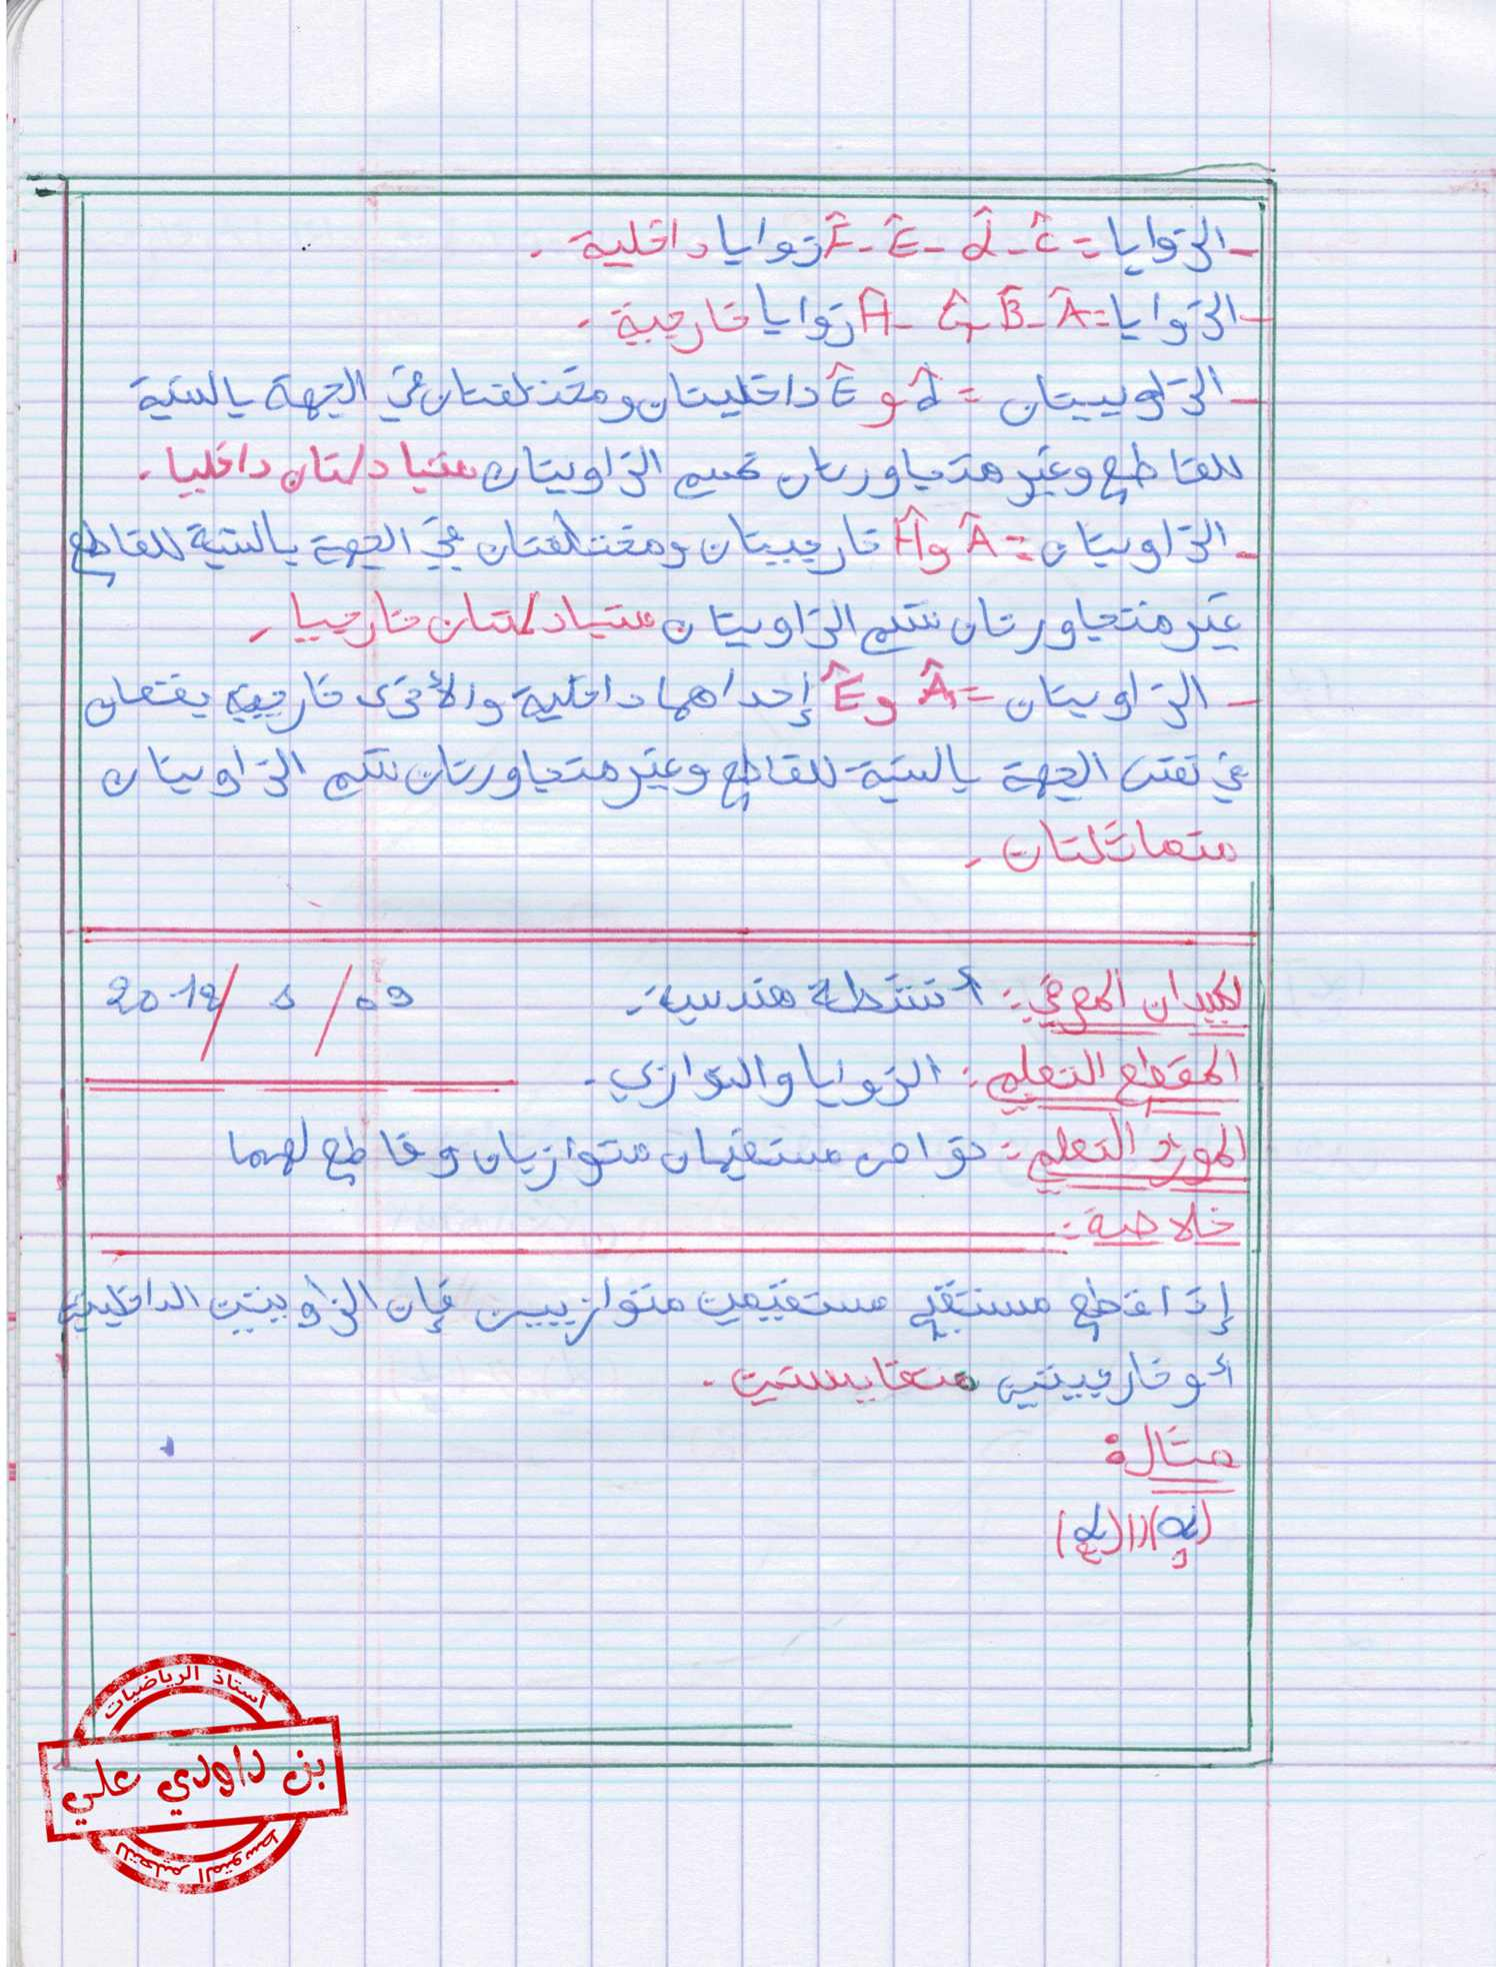 - الزوايا = Ĉ - d̂ - Ê - F̂ زوايا داخلية .
- الزوايا = Â - B̂ - Ĝ - Ĥ زوايا خارجية .
- الزاويتان = d̂ و Ê داخليتان ومختلفتان في الجهة بالنسبة
للقاطع وغير متجاورتان نسمي الزاويتان متبادلتان داخليا .
- الزاويتان = Â و Ĥ خارجيتان ومختلفتان في الجهة بالنسبة للقاطع
غير متجاورتان نسمي الزاويتان متبادلتان خارجيا .
- الزاويتان = Â و Ê إحداهما داخلية والأخرى خارجية يقعان
في نفس الجهة بالنسبة للقاطع وغير متجاورتان نسمي الزاويتان
متماثلتان .
الميدان المعرفي : أنشطة هندسية . 09 / 5 / 2018
المقطع التعلمي : الزوايا والتوازي .
المورد التعلمي : خواص مستقيمان متوازيان وقاطع لهما
خلاصة :
إذا قطع مستقيم مستقيمين متوازيين فإن الزاويتين الداخليتين
أو خارجيتين متقايستين .
مثال :
أستاذ الرياضيات
بن داودي علي
للتعليم المتوسط